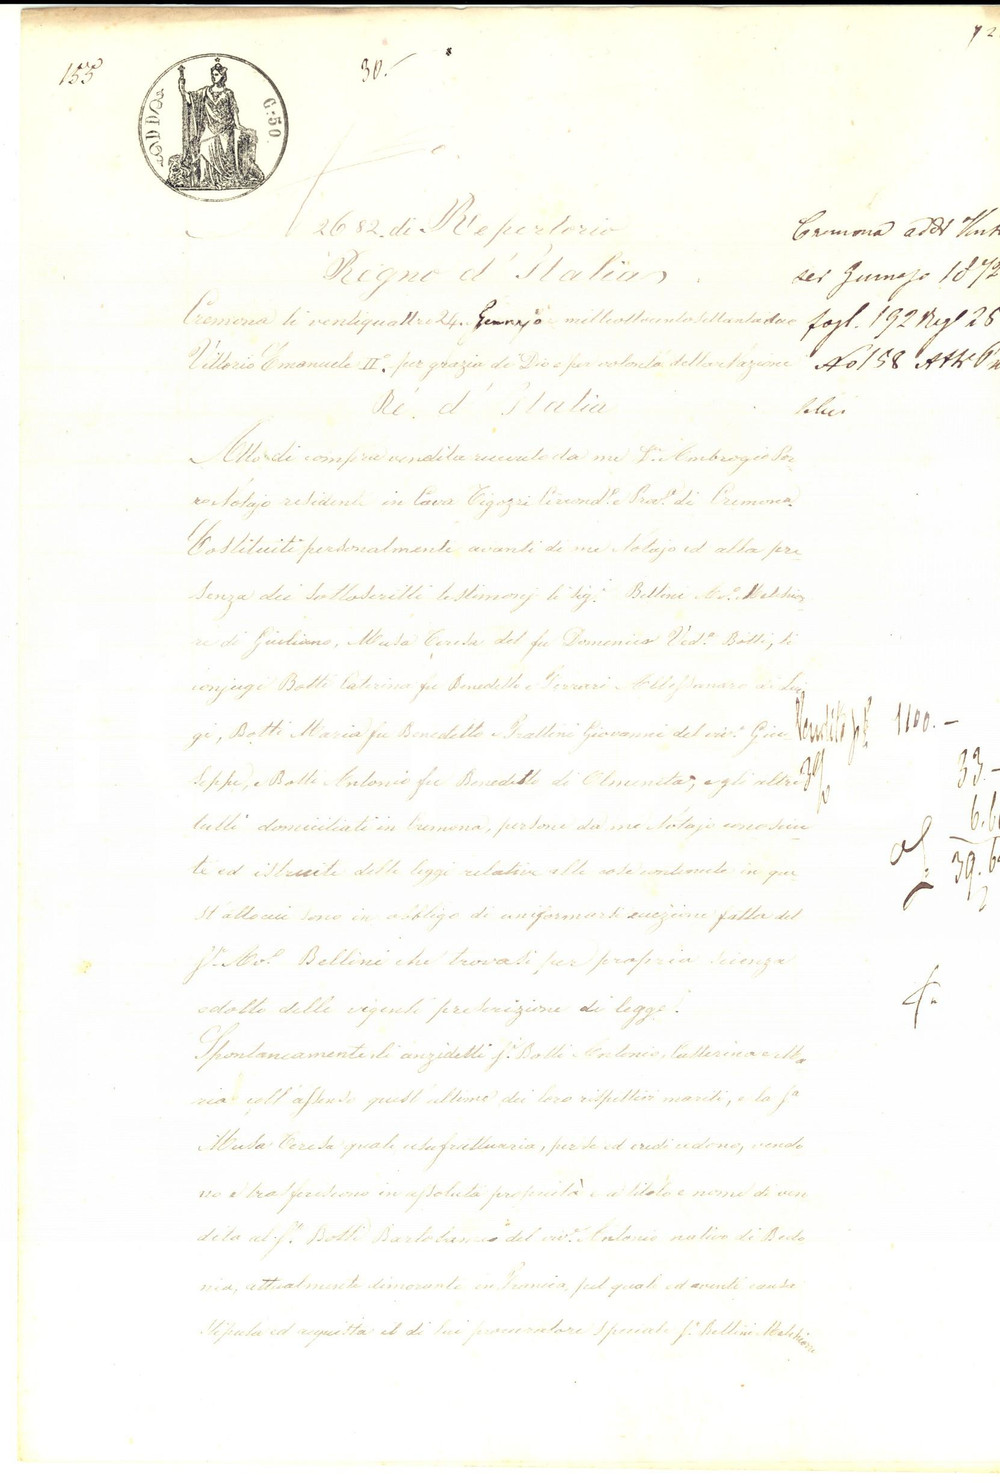 155
30.-
C: 50
2682. di Repertorio
Regno d' Italia
Cremona li ventiquattro 24. Gennajo milleottocentosettantadue
Vittorio Emanuele II°. per grazia di Dio e per volontà della Nazione
Ré d' Italia
Atto di compra vendita ricevuto da me Dr. Ambrogio
Notajo residente in Cava Tigozzi Circond.e Prov.a di Cremona.
Costituiti personalmente avanti di me Notajo ed alla pre-
senza dei sottoscritti testimonj li Sig.i Bellini Melchio-
re di Giuliano, Musa Teresa del fu Domenico Ved.a Botti, li
conjugi Botti Caterina fu Benedetto e Ferrari Allessandro di Lui-
gi, Botti Maria fu Benedetto e Frattini Giovanni del viv.e Giu-
seppe, e Botti Antonio fu Benedetto di Olmeneta, e gli altri
tutti domiciliati in Cremona, persone da me Notajo conosciu-
te ed istruite delle leggi relative alle cose contenute in que-
st' atto cui sono in obbligo di uniformarsi eccezione fatta del
Sr. Bellini che trovasi per propria scienza
edotto delle vigenti prescrizione di legge.
Spontaneamente li anzidetti Sr. Botti Antonio, Catterina e Ma-
ria coll' assenso quest' ultime dei loro rispettivi mariti, e la Sa
Musa Teresa quale usufruttuaria, per se ed eredi cedono, vendo-
no e trasferiscono in assoluta proprietà e a titolo e nome di ven-
dita al Sr. Botti Bartolomeo del viv.e Antonio nativo di Bedo-
nia, attualmente dimorante in Francia, pel quale ed aventi causa
stipula ed acquista il di lui procuratore speciale Sr. Bellini Melchiorre
Cremona addì
sei Gennajo 1872
fogl. 192 Reg 28
No 158 Atti
blici
Vendita 1100.-
3%
33.-
6.6
39.6